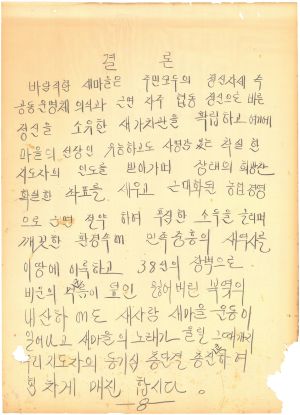 결 론
바람직한 새마을은 주민모두의 정신자세 즉
공동운명체 의식과 근면 자주 협동 정신으로 바른
정신을 소유한 새가치관을 확립하고 여기에
마을의 선장인 유능하고도 사명감 있는 착실한
지도자의 인도를 받아가며 상태의
확실한 좌표를 세우고 근대화된 농업경영
으로 근면 절약 하며 무궁한 소득을 올리며
깨끗한 환경속에 민족중흥의 새역사를
이땅에 이룩하고 38선의 장벽으로
비운의 먹음이 덮인 잃어버린 북녘의
내산하 에도 새사람 새마을 운동이
일어나고 새마을의 노래가 울릴 그때까지
우리지도자의 동기심 총단결 총진하여
힘차게 매진 합시다.
8